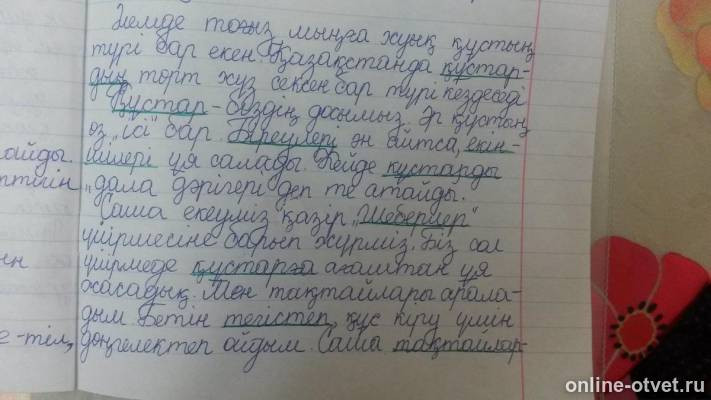 Әлемде тоғыз мыңға жуық құстың
түрі бар екен. Қазақстанда құстар-
дың төрт жүз сексен бар түрі кездеседі
Құстар - біздің досымыз. Әр құстың
өз "ісі" бар. Біреулері ән айтса, екін-
айды. шілері ұя салады. Кейде құстарды
птиін "дала дәрігері деп те атайды.
Саша екеуміз қазір "Шеберлер"
үйірмесіне барып жүрміз. Біз сол
үйірмеде құстарға ағаштан ұя
жасадық. Мен тақтайлары арала-
дым Бетін тегістеп, құс кіру үшін
е-тіл, дөңгелектеп ойдым. Саша тақтайлар-
online-otvet.ru